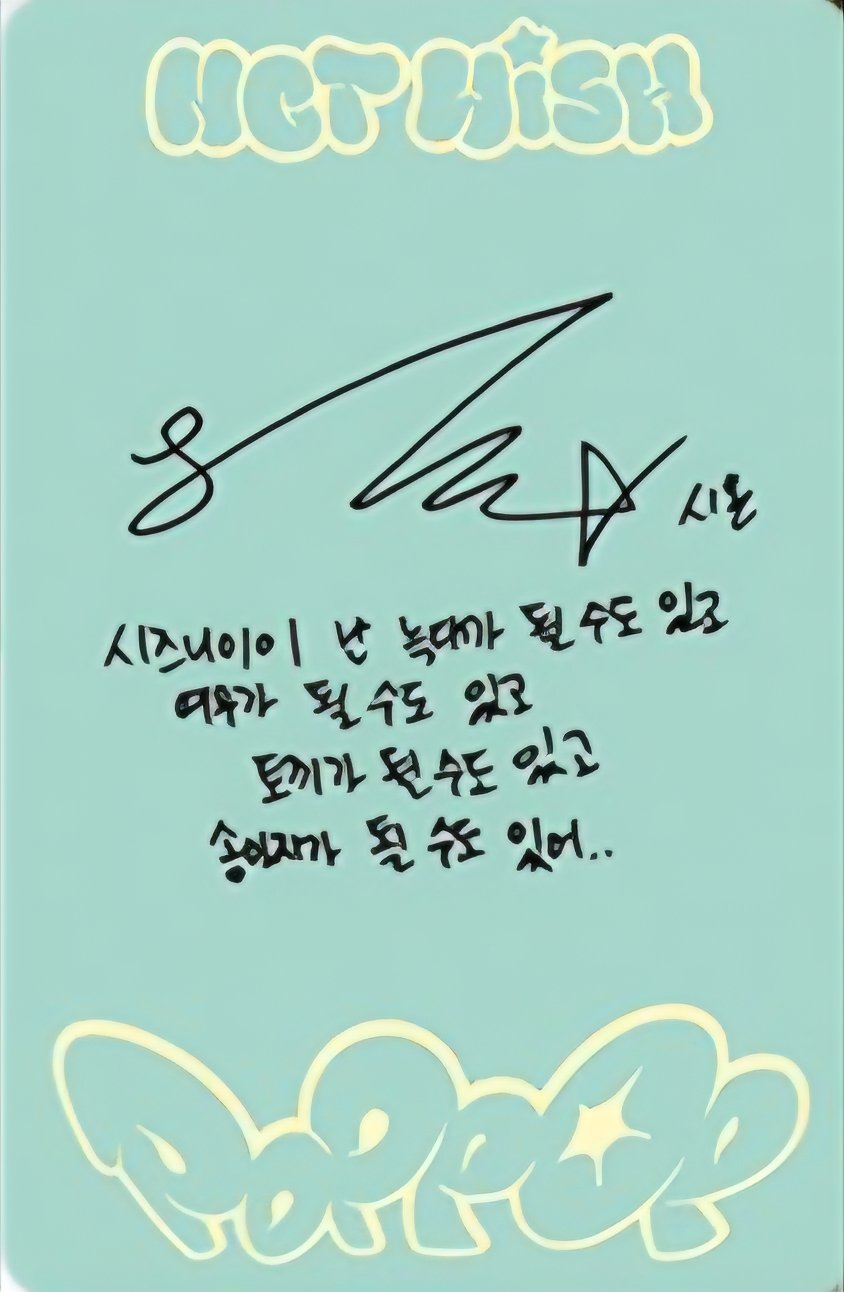 NCT WiSH
시온
시즈니이이 난 늑대가 될 수도 있고
여우가 될 수도 있고
토끼가 될 수도 있고
송아지가 될 수도 있어..
POPPOP